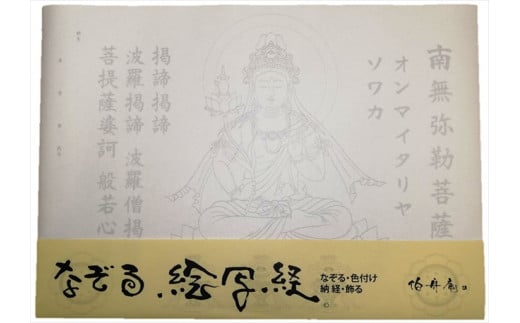 南無弥勒菩薩
オンマイタリヤ
ソワカ
掲諦掲諦
波羅掲諦 波羅僧掲
菩提薩婆訶 般若心
なぞる 絵写経
なぞる・色付け
納経・飾る